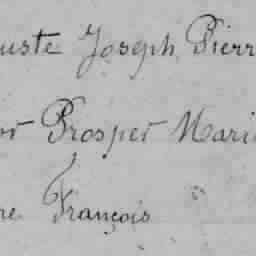 uste Joseph Pierr
or Prosper Mari
re François